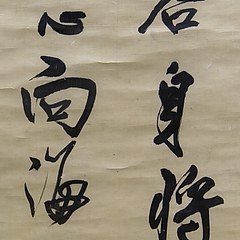 右身将
心向海